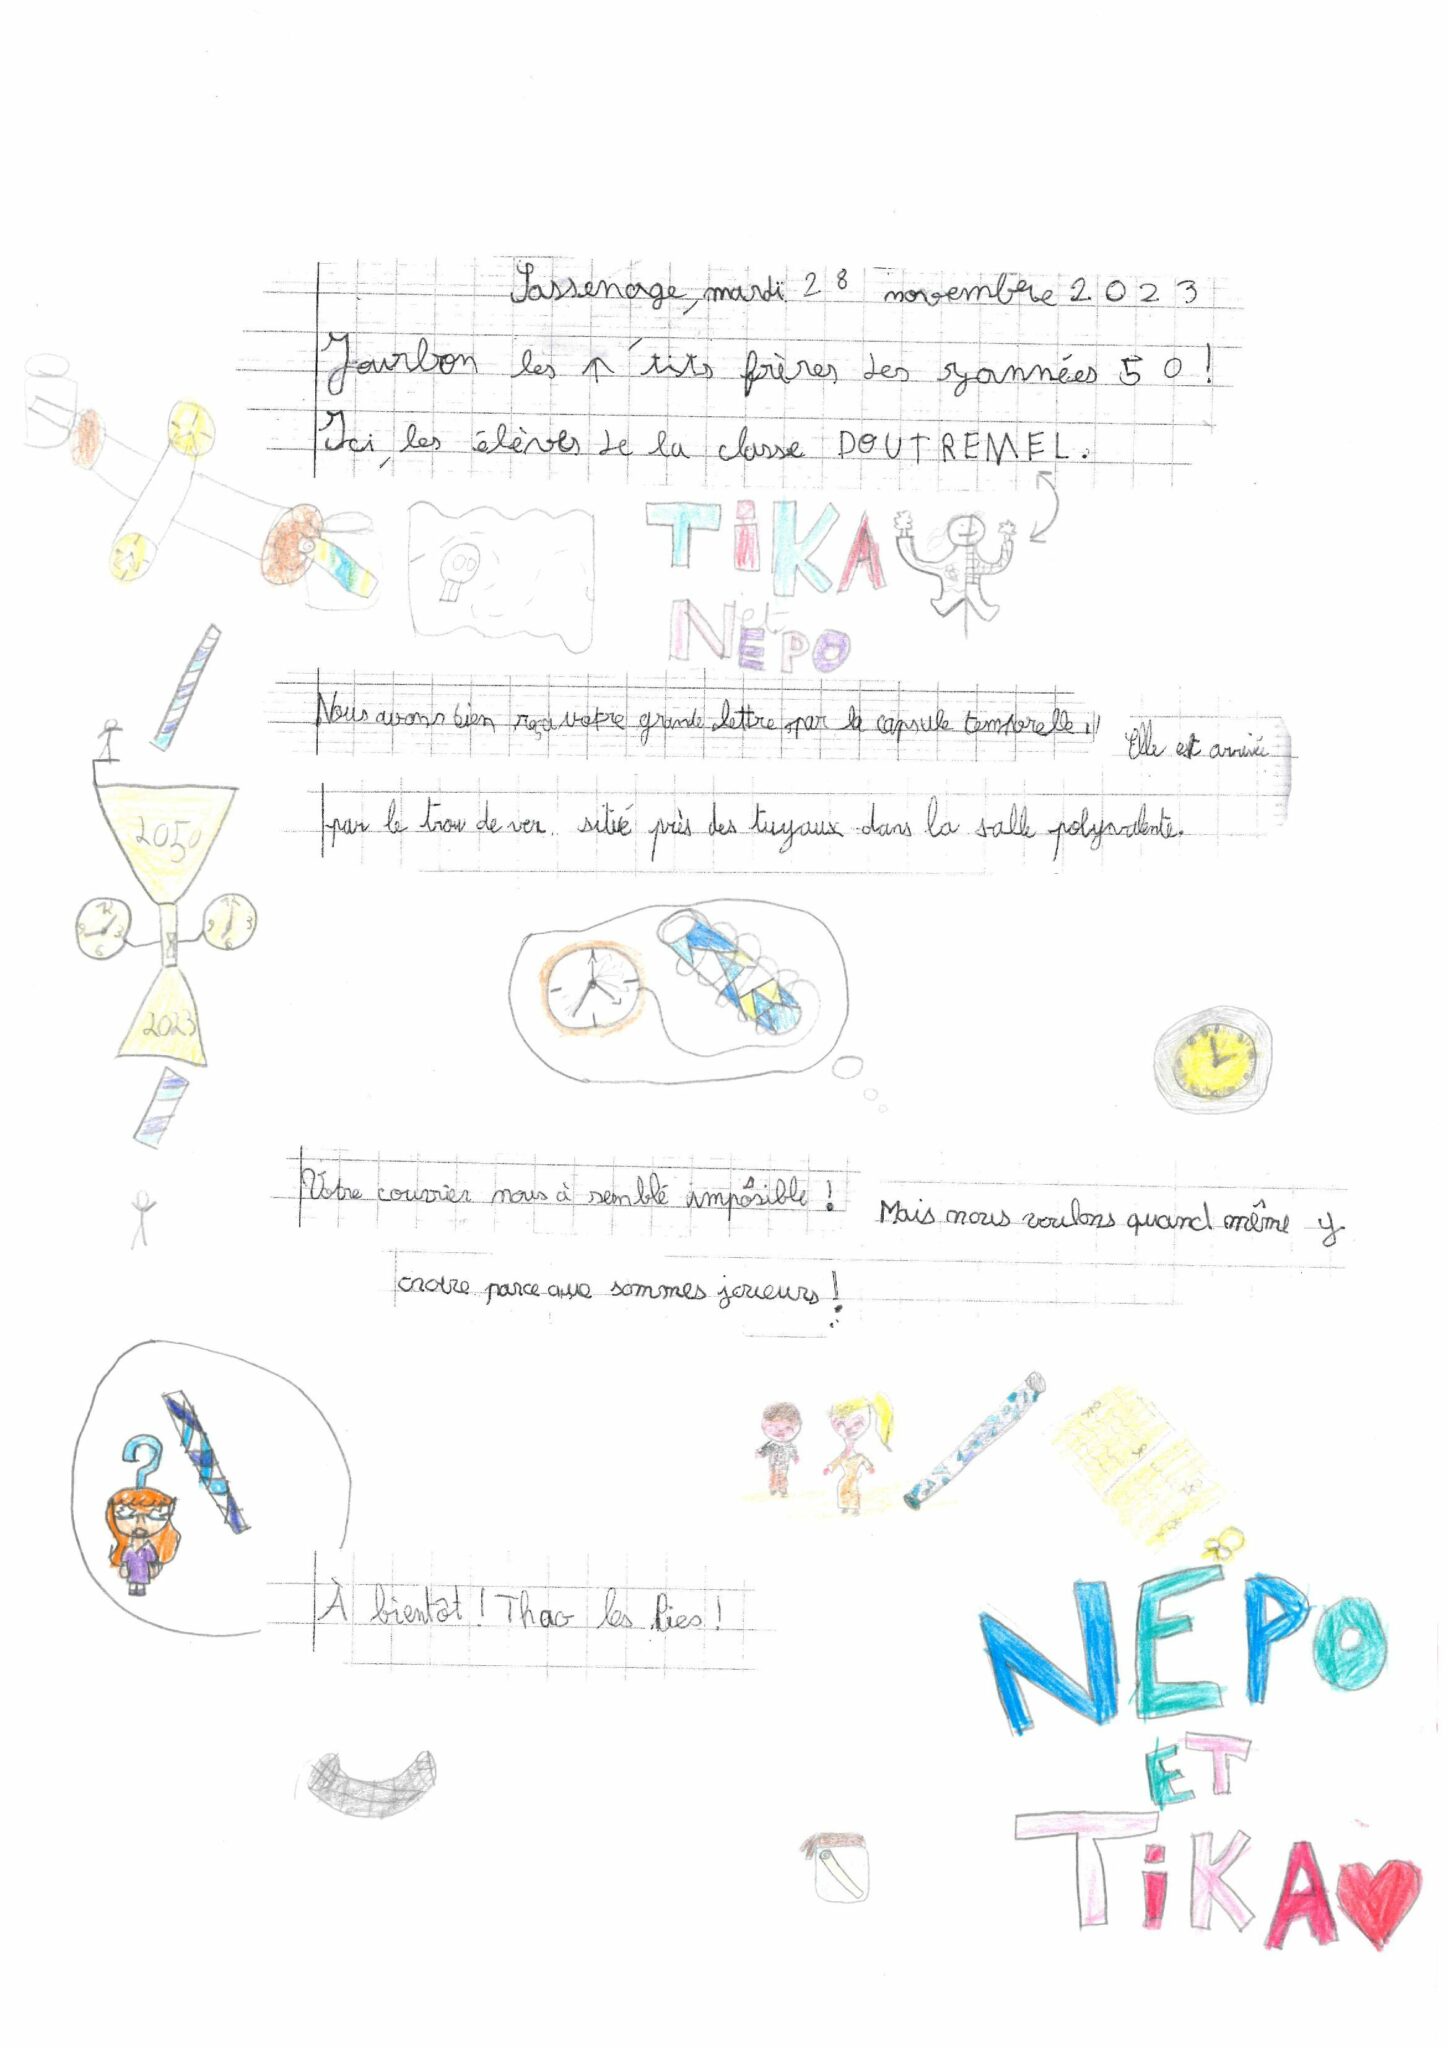 Sassenage, mardi 28 novembre 2023
Jourbon les p'tits frères des zyannées 50!
Ici, les élèves de la classe DOUTREMEL.
TiKA
et
NEPO
Nous avons bien reçu votre grande lettre par la capsule temporelle!!
Elle est arrivée
par le trou de ver situé près des tuyaux dans la salle polyvalente.
2050
2023
Votre courrier nous à semblé impôsible!
Mais nous voulons quand même y
croire parce que sommes joueurs!
?
À bientôt! Thao les Pies!
NÉPO
ET
TiKA